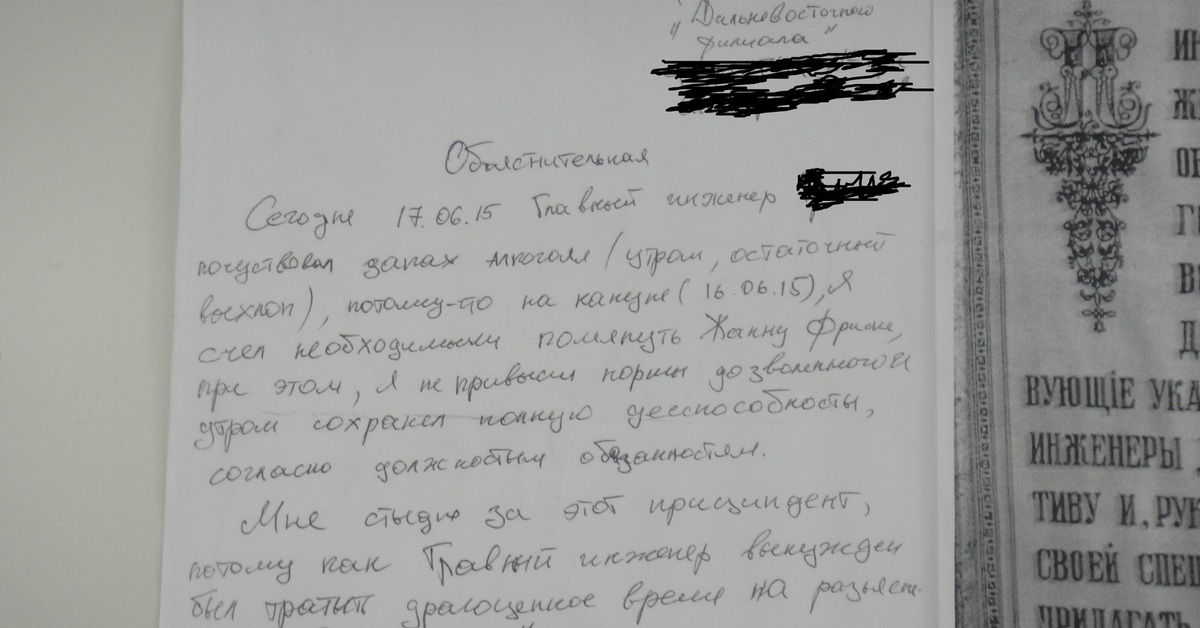 "Дальневосточного
филиала"
Объяснительная
Сегодня 17.06.15 Главный инженер
почуствовал запах алкоголя (утром, остаточный
выхлоп), потому-что на кануне (16.06.15), я
счел необходимым помянуть Жанну Фриске,
при этом, я не привысил нормы дозволенного и
утром сохранял полную дееспособность,
согласно должностным обязанностям.
Мне стыдно за этот присциндент,
потому как Главный инженер вынужден
был тратить драгоценное время на разъясн-
ВУЮЩІЕ УКА
ИНЖЕНЕРЫ
ТИВУ И, РУК
СВОЕЙ СПЕЦ
ПРИЛАГАТЬ